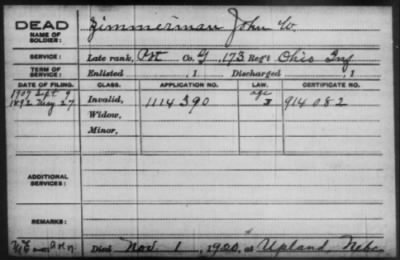 DEAD
NAME OF SOLDIER: Zimmerman John W.
SERVICE: Late rank, Pvt Co. G, 173 Reg't Ohio Inf
TERM OF SERVICE: Enlisted , 1 Discharged , 1
DATE OF FILING. CLASS. APPLICATION NO. LAW. CERTIFICATE NO.
1907 Sept 9 age
1892 May 27 Invalid, 1114390 914082
Widow,
Minor,
ADDITIONAL SERVICES:
REMARKS:
Died Nov. 1, 1920, at Upland Nebr